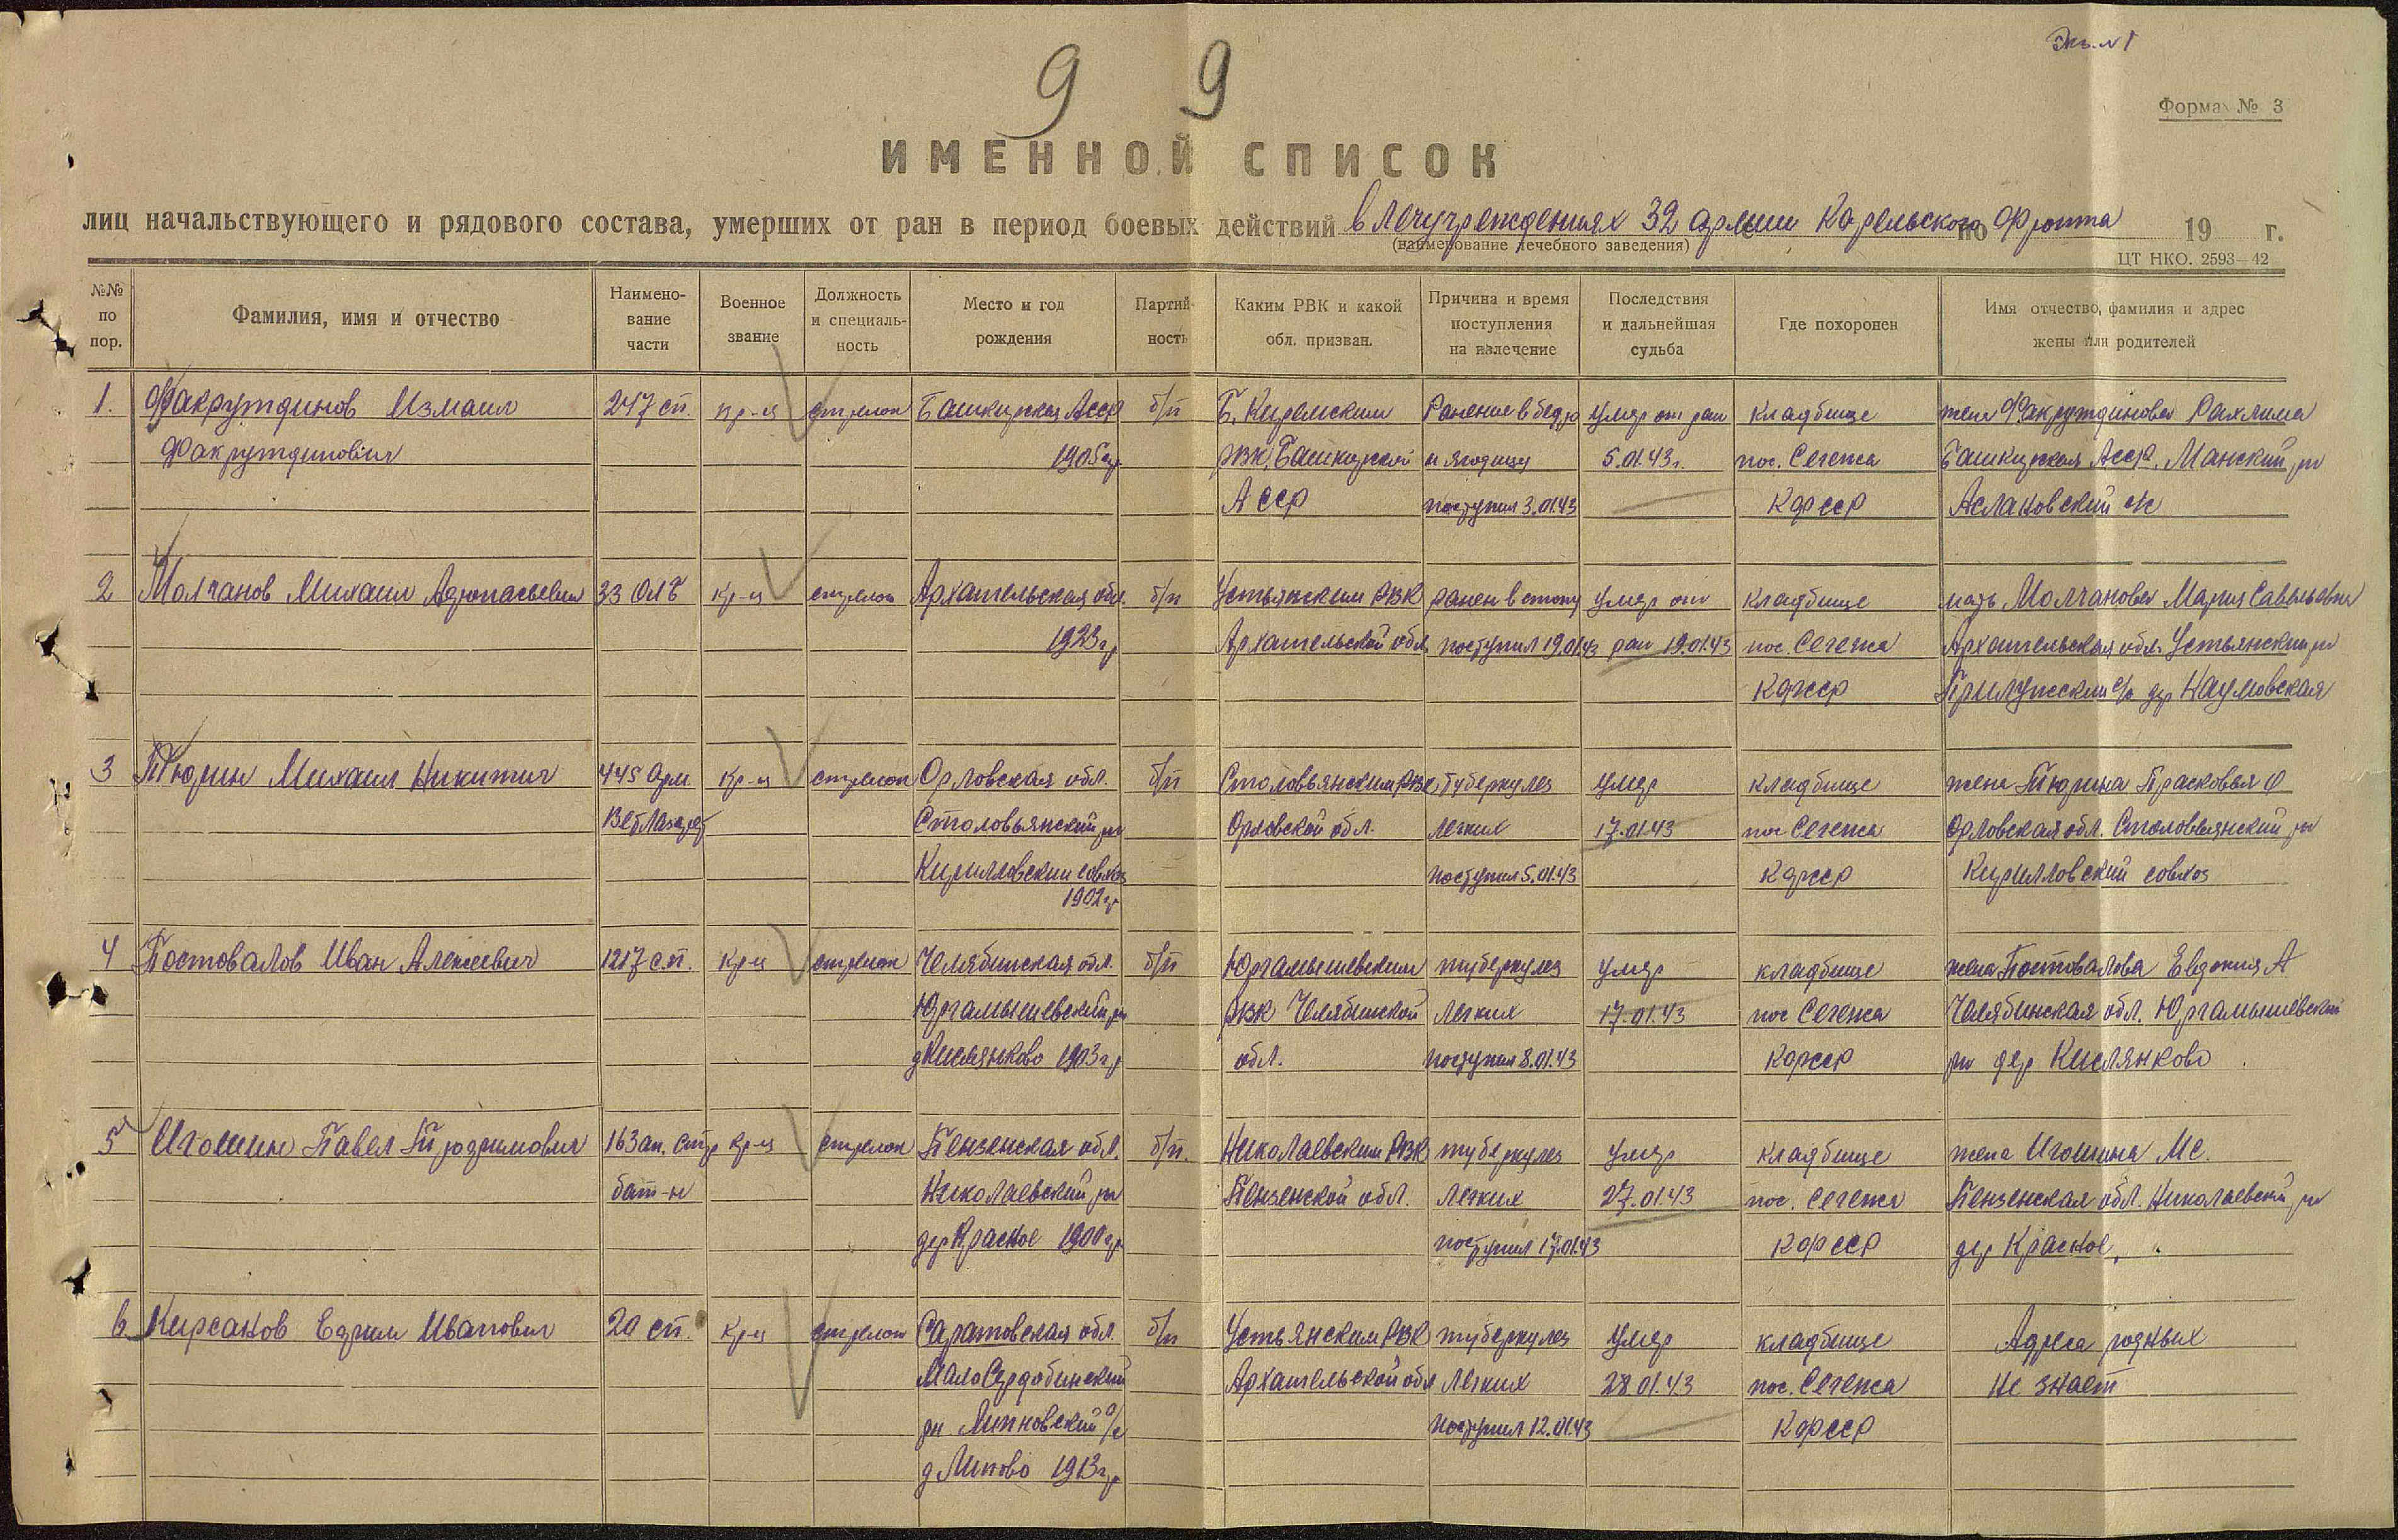 Экз. №1
9 9
Форма № 3
ИМЕННОЙ СПИСОК
лиц начальствующего и рядового состава, умерших от ран в период боевых действий в лечучреждениях 32 армии Карельского фронта по 19 г.
(наименование лечебного заведения)
ЦТ НКО. 2593—42
№№ по пор.
Фамилия, имя и отчество
Наимено-вание части
Военное звание
Должность и специаль-ность
Место и год рождения
Партий-ность
Каким РВК и какой обл. призван.
Причина и время поступления на излечение
Последствия и дальнейшая судьба
Где похоронен
Имя отчество, фамилия и адрес жены или родителей
1. Факрутдинов Измаил 247 сп. кр-ц стрелок Башкирская Асср б/п Б. Киремским Ранение в бедро умер от ран кладбище жена Факрутдинова Рахлима
Факрутдинович 1905 гр РВК, Башкирской и ягодицу 5.01.43г. пос. Сегежа Башкирская Асср, Манский рн
АССР поступил 3.01.43 Кфсср Аслаковский с/с
2 Молчанов Михаил Афонасьевич 33 ОЛБ кр-ц стрелок Архангельская обл. б/п Устьянским РВК ранен в стопу умер от кладбище мать Молчанова Мария Савельевна
1923 гр Архангельской обл. поступил 19.01.43 ран 19.01.43 пос. Сегежа Архангельская обл. Устьянский рн
Кфсср Прилукский с/с дер Наумовская
3 Тюрин Михаил Никитич 445 Арм. кр-ц стрелок Орловская обл. б/п Столовьянским РВК туберкулез умер кладбище жена Тюрина Прасковья Ф
Ветлазарет Столовьянский рн Орловской обл. легких 17.01.43 пос Сегежа Орловская обл. Столовьянский рн
Кирилловский совхоз поступил 5.01.43 Кфсср Кирилловский совхоз
1902 гр
4 Постовалов Иван Алексеевич 1217 с.п. кр-ц стрелок Челябинская обл. б/п Юргамышевским туберкулез умер кладбище жена Постовалова Евдокия А
Юргамышевский рн РВК Челябинской легких 17.01.43 пос Сегежа Челябинская обл. Юргамышевский
д Кислянково 1903 гр обл. поступил 8.01.43 Кфсср рн дер Кислянково
5 Игошин Павел 163 ап. стр кр-ц стрелок Пензенская обл. б/п. Николаевским РВК туберкулез умер кладбище жена Игошина М.С.
бат-н Николаевский рн Пензенской обл. легких 27.01.43 пос. Сегежа Пензенская обл. Николаевский рн
дер Красное 1900 гр поступил 17.01.43 Кфсср дер Красное
6 Кирсанов Ефим Иванович 20 сп. кр-ц стрелок Саратовская обл. б/п Устьянским РВК туберкулез умер кладбище Адреса родных
МалоСердобинский Архангельской обл легких 28.01.43 пос. Сегежа не знает
рн Липовский с/с поступил 12.01.43 Кфсср
д Липово 1913 гр